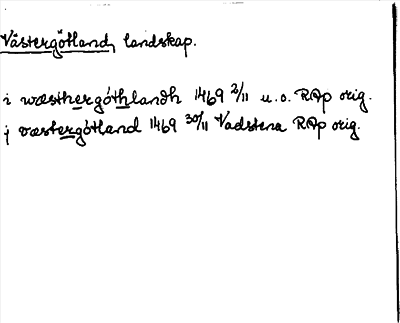 Västergötland, landskap.
i wæsthergóthlandh 1469 2/11 u.o. RAp orig.
j væstergótland 1469 30/11 Vadstena RAp orig.